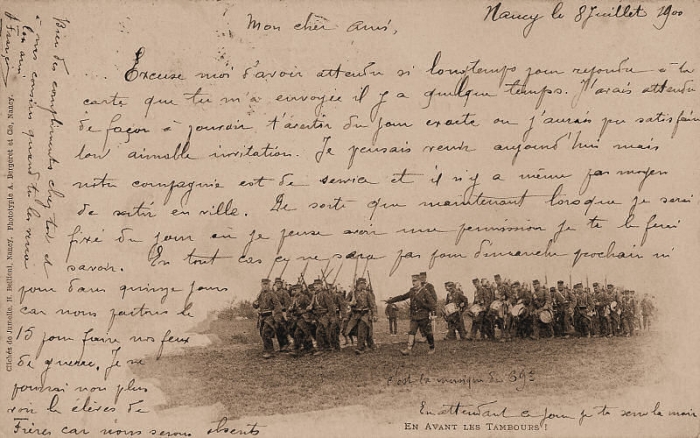 Nancy le 8 Juillet 1900
Mon cher ami,
Excuse moi d'avoir attendu si longtemps pour répondre à ta
carte que tu m'a envoyée il y a quelque temps. J'avais attendu
de façon à pouvoir t'avertir du jour exacte ou j'aurais pu satisfaire
ton aimable invitation. Je pensais venir aujourd'hui mais
notre compagnie est de service et il n'y a même pas moyen
de sortir en ville. De sorte que maintenant lorsque je serai
fixé du jour où je pense avoir une permission je te le ferai
savoir. En tout cas ce ne sera pas pour dimanche prochain ni
pour dans quinze jours
car nous partons le
15 pour faire nos feux
de guerre, Je ne
pourrai non plus
voir les élèves de
Frères car nous serons absents
En attendant ce jour je te serre la main
C'est la musique du 39e
EN AVANT LES TAMBOURS !
Bien des compliments chez toi et
à mes cousins quand tu les verra
Ton ami
Clichés de Jumelle, H. Bellieni, Nancy. Phototypie A. Bergeret et Cie, Nancy.